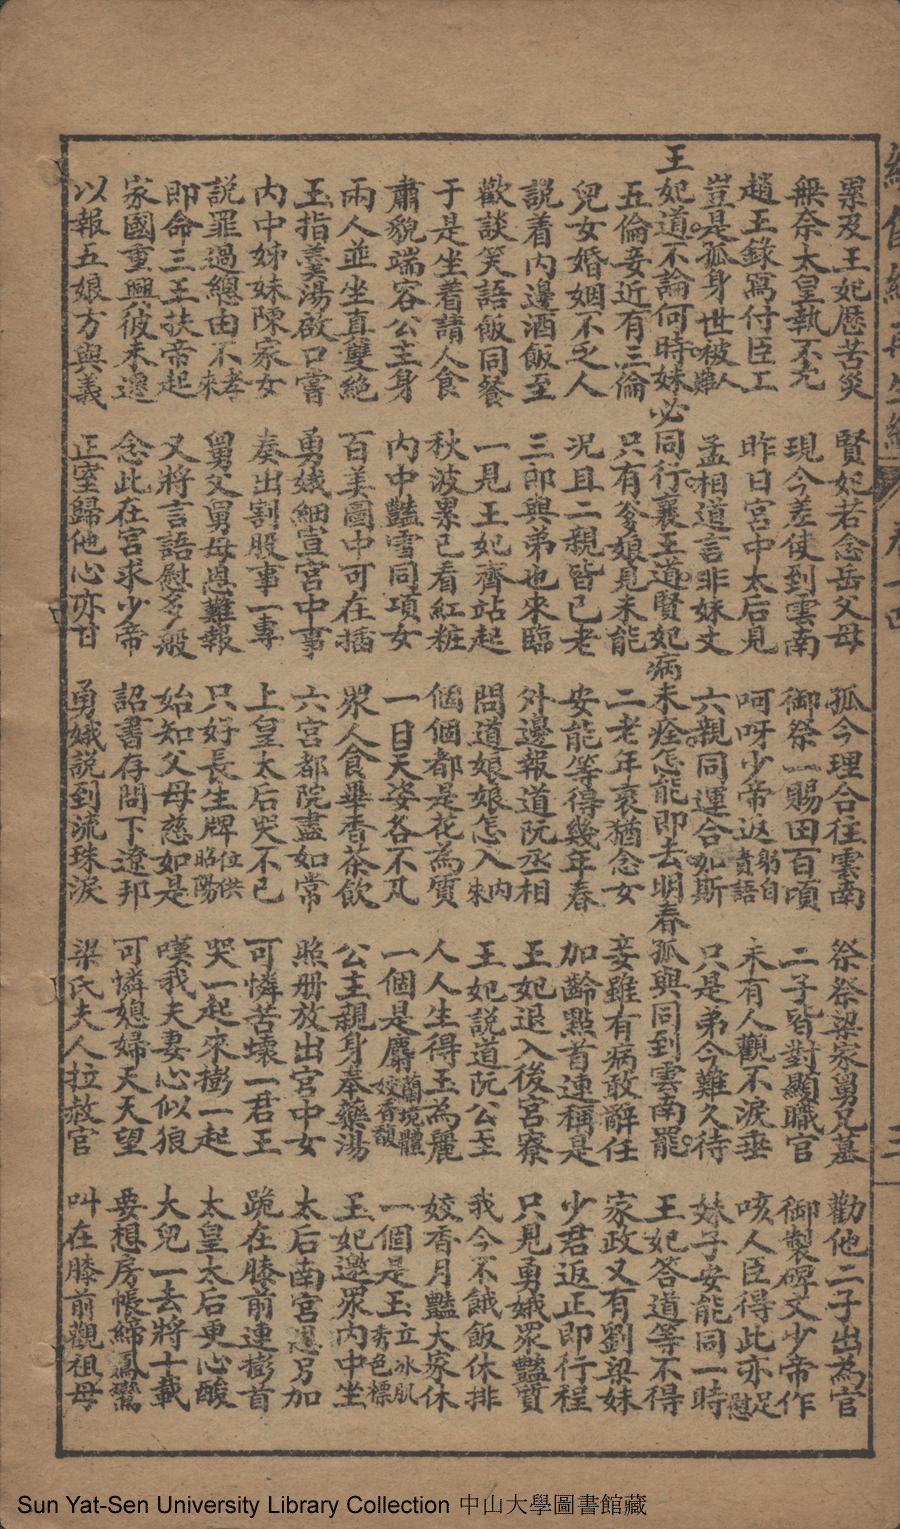 累及王妃歷苦災 賢妃若念岳父母 孤今理合往雲南 祭祭梁家舅兄墓 勸他二子出為官
無奈太皇執不允 現今差使到雲南 御祭一賜田百頃 二子皆對顯職官 御製碑文少帝作
趙王錄寫付臣工 昨日宮中太后見 呵呀少帝返躬自責語 未有人觀不淚垂 咳人臣得此亦足慰
豈是孤身世被人難 孟相道言非妹丈 六親同運合如斯 只是弟今難久待 妹子安能同一時
王妃道不論何時妹必同行襄王道賢妃病未痊怎能即去明春孤與同到雲南罷 王妃答道等不得
五倫妾近有三倫 只有爹娘見未能 二老年衰猶念女 妾雖有病敢辭任 家政又有劉梁妹
兒女婚姻不乏人 况且二親皆已老 安能等得幾年春 加齡點首連稱是 少君返正即行程
說着內邊酒飯至 三郎與弟也來臨 外邊報道阮丞相 王妃退入後宮寮 只見勇娥眾豔質
歡談笑語飯同餐 一見王妃齊站起 問道娘娘怎入內來 王妃說道阮公至 我今不餓飯休排
于是坐着請人食 秋波累已看紅粧 個個都是花為質 人人生得玉為麗 姣香月豔大家休
肅貌端容公主身 內中豔雪同項女 一日天姿各不凡 一個是麝蘭境體姣香馥 一個是玉立冰肌秀色標
兩人並坐真雙絕 百美圖中可在插 眾人食畢香茶飲 公主親身奉藥湯 王妃邀眾內中坐
玉指羹湯啟口嘗 勇娥細宣宮中事 六宮都院盡如常 照册放出宮中女 太后南宮選另加
內中姊妹陳家女 奏出割股事一專 上皇太后哭不已 可憐苦壞一君王 跪在膝前連彭首
說罪過總由不孝來 舅父舅母恩難報 只好長生牌位供昭陽 哭一起來彭一起 太皇太后更心酸
即命三王扶帝起 又將言語慰多般 始知父母慈如是 嘆我夫妻心似狼 大兒一去將十載
家國重興彼未還 念此在宮求少帝 詔書存問下遼邦 可憐媳婦天天望 要想房帳締鳳鸞
以報五娘方與義 正室歸他心亦甘 勇娥説到流珠淚 梁氏夫人拉赦官 叫在膝前觀祖母
三
Sun Yat-Sen University Library Collection 中山大學圖書館藏